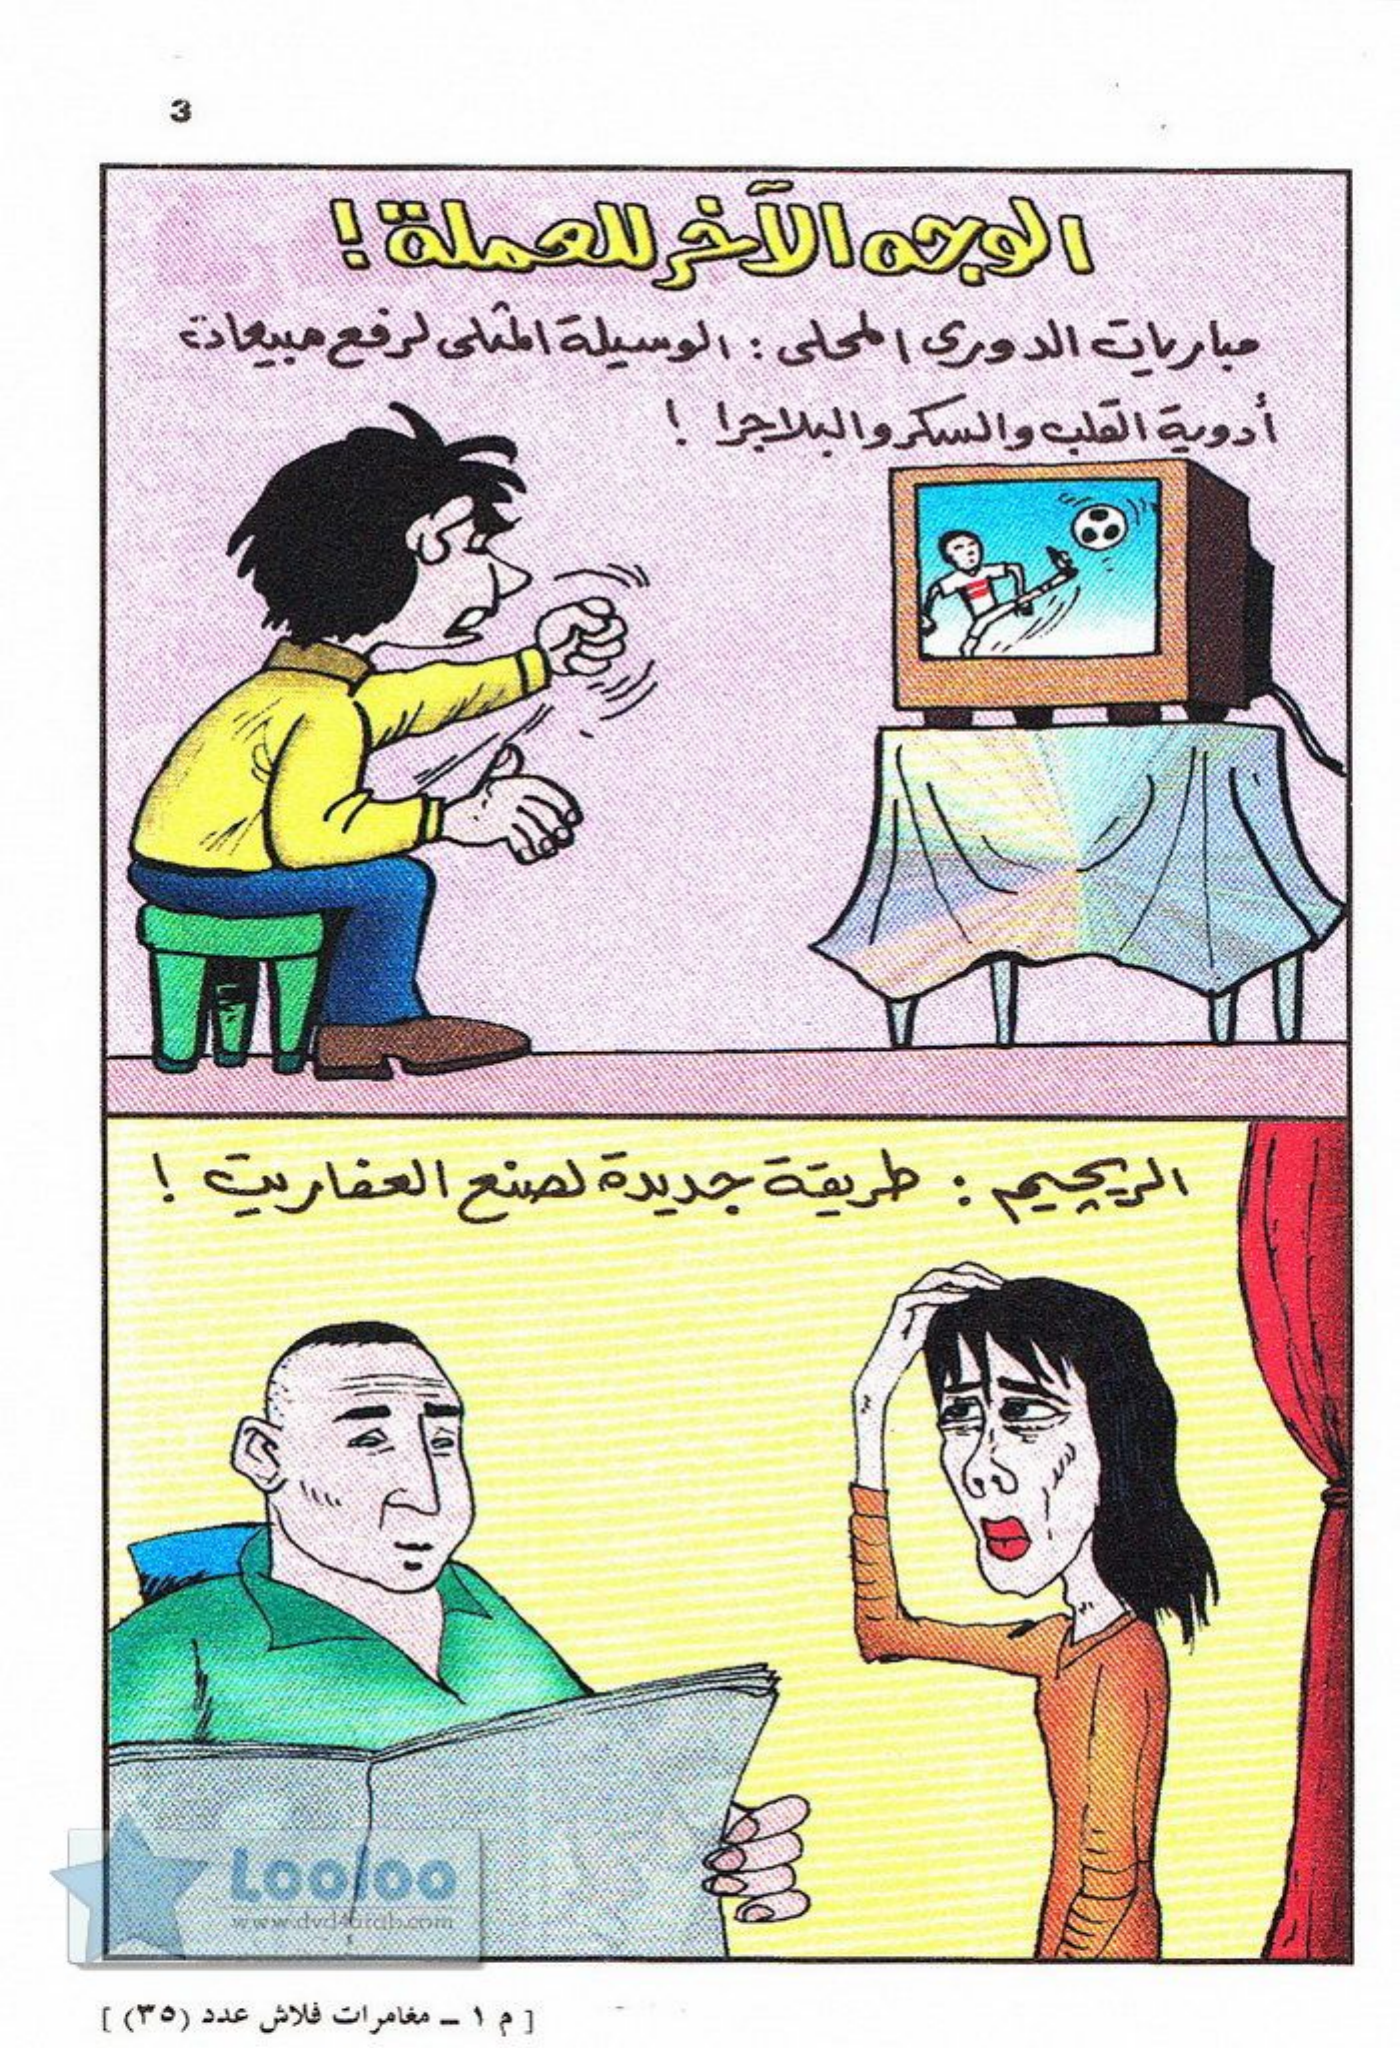 3
الوجه الآخر للعملة !
مباريات الدورى المحلى : الوسيلة المثلى لرفع مبيعات
أدوية القلب والسكر والبلاجرا !
الريچيم : طريقة جديدة لصنع العفاريت !
Looloo
www.dvd4arab.com
[ م ١ ــ مغامرات فلاش عدد (٣٥) ]